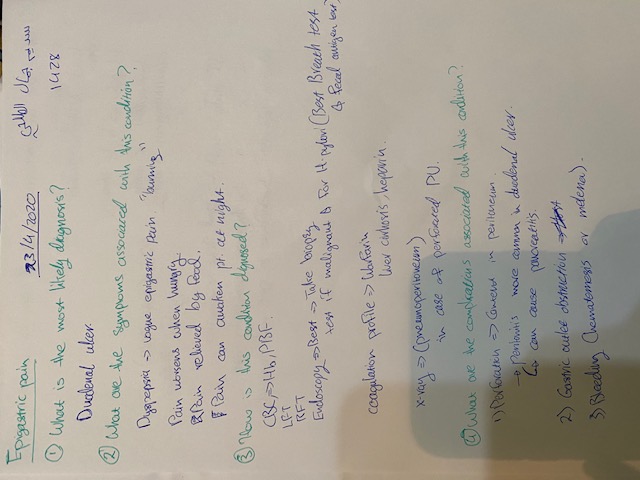 Epigastric pain
23/4/2020
1428
① What is the most likely diagnosis?
Duodenal ulcer
② What are the symptoms associated with this condition?
Dyspepsia => vague epigastric pain "burning"
Pain worsens when hungry
Pain relieved by food.
Pain can awaken pt. at night.
③ How is this condition diagnosed?
CBC => Hb, PBF.
LFT
RFT
Endoscopy => Best => Take biopsy
test if malignant & For H-pylori (Best Breath test
& fecal antigen test)
coagulation profile => Warfarin
liver cirhosis, heparin.
x-ray => (pneumoperitoneum)
in case of perforated PU.
④ What are the complications associated with this condition?
1) Perforation => Content in peritoneum.
→ Peritonitis more common in duodenal ulcer.
↳ can cause pancreatitis.
2) Gastric outlet obstruction
3) Bleeding (hematemesis or melena).